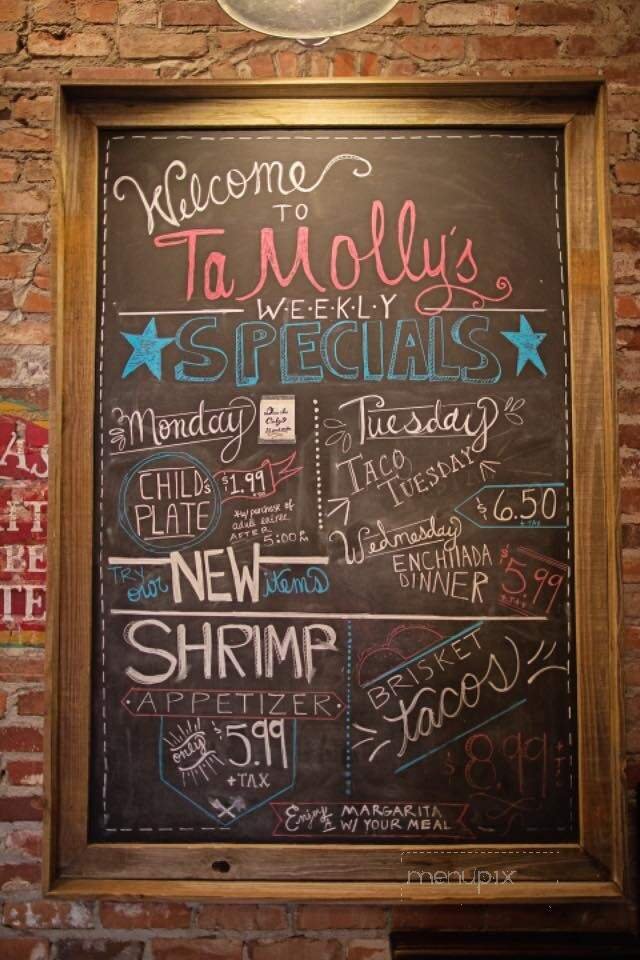 Welcome
TO
TaMolly's
W·E·E·K·L·Y
SPECIALS
Monday
CHILD'S
PLATE
$1.99
W/ purchase of
adult entrée
AFTER
5:00
Tuesday
TACO
TUESDAY
$6.50
+ TAX
Wednesday
ENCHILADA
DINNER
$5.99
+ TAX
TRY
our NEW items
SHRIMP
APPETIZER
only
$5.99
+ TAX
BRISKET
tacos
$8.99
Enjoy A MARGARITA
W/ YOUR MEAL
menupix